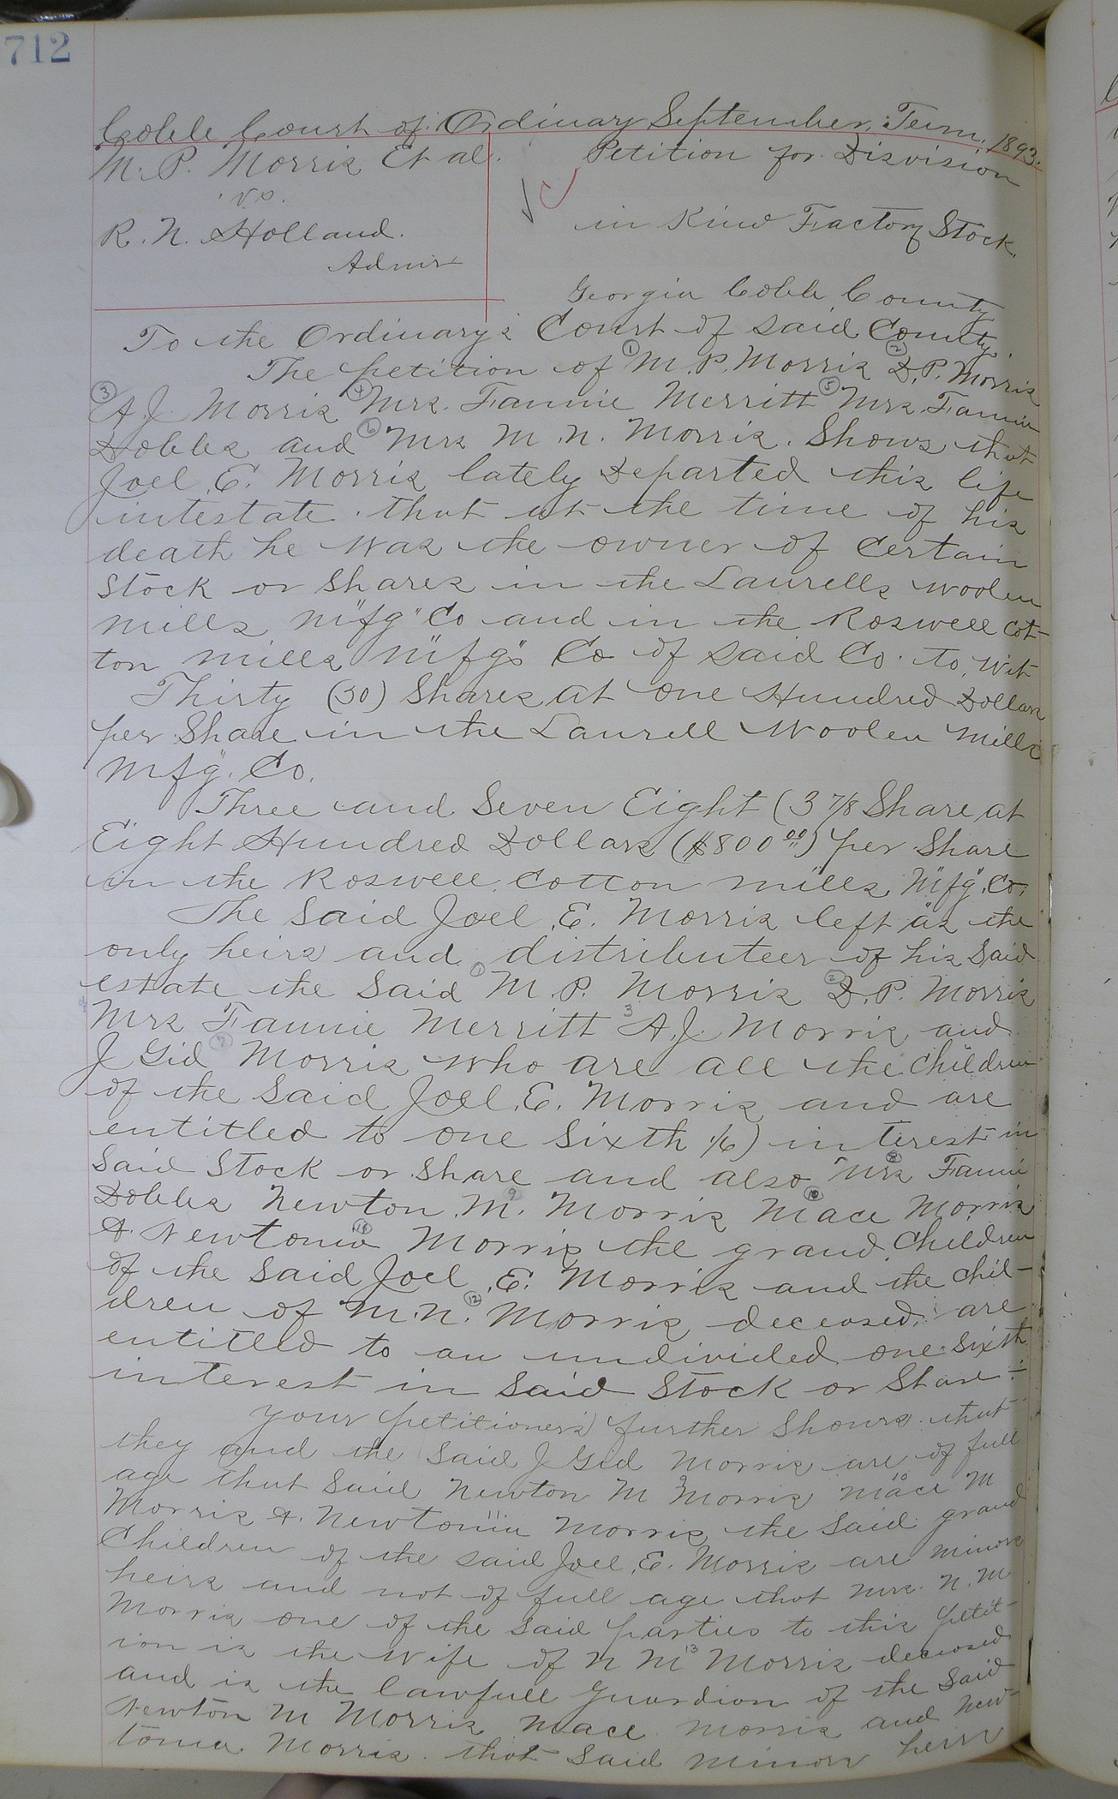 712
Cobb Court of Ordinary September, Term, 1893.
M. P. Morris Et al.
vs.
R. N. Holland.
Admr
Petition for Disvision
in Kind Factory Stock
Georgia Cobb County
To the Ordinary's Court of said County.
The petition of ① M. P. Morris ② D. P. Morris
③ A J. Morris ④ Mrs. Fannie Merritt ⑤ Mrs. Fannie
Dobbs and ⑥ Mrs M. N. Morris. Shows that
Joel, E. Morris lately Departed this life
intestate that at the time of his
death he was the owner of Certain
Stock or Shares in the Laurells woolen
mills, M"f'g" Co and in the Roswell cot-
ton mills M"f'g" Co of said Co. to, wit
Thirty (30) Shares at one Hundred Dollars
per Share in the Laurell Woolen Mills
Mfg". Co.
Three and Seven Eight (3 7/8 Share, at
Eight Hundred Dollars ($800.00) per Share
in the Roswell Cotton mills, M"f'g", Co,
The Said Joel, E. Morris left as the
only heirs and distributeer of his Said
estate the Said ① M. P. Morris ② D. P. Morris
Mrs Fannie Merritt 3 A. J. Morris and
J Gid ⑦ Morris who are all the Children
of the Said, Joel, E. Morris and are
entitled to one Sixth 1/6) interest in
Said Stock or Share and also ⑧ Mrs Fannie
Dobbs Newton, M. 9 Morris Mace ⑩ Morris
& Newtonia ⑪ Morris the grand Children
of the Said Joel, E. Morris and the chil-
dren of M. N. ⑫ Morris deceased, are
entitled to an undivided one Sixth
interest in Said Stock or Share.
your petitioners further Shows that
they and the Said J Gid Morris are of full
age that Said Newton M 9 Morris Mace 10 M
Morris & Newtonia 11 Morris the Said grand
Children of the said Joel, E. Morris are minors
heirs and not of full age that Mrs. N. M
Morris one of the Said parties to this petit-
ion is the wife of N M 13 Morris deceased
and is the lawfull guardion of the Said
Newton M Morris Mace Morris and New-
tonia Morris. that Said minor heirs